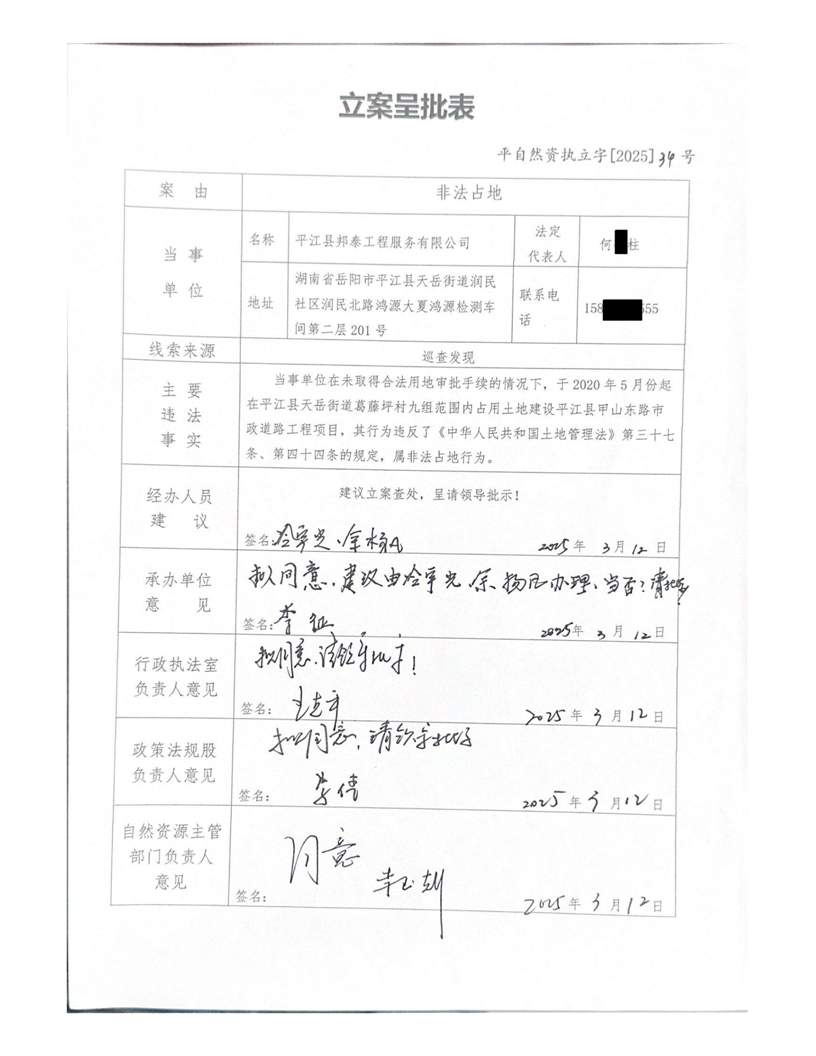 立案呈批表
平自然资执立字[2025]34号
案 由 非法占地
当 事 单 位
名称 平江县邦泰工程服务有限公司
法定代表人 何 柱
地址
湖南省岳阳市平江县天岳街道润民
社区润民北路鸿源大夏鸿源检测车
间第二层 201 号
联系电话 158 555
线索来源 巡查发现
主 要 违 法 事 实
当事单位在未取得合法用地审批手续的情况下，于 2020 年 5 月份起
在平江县天岳街道葛藤坪村九组范围内占用土地建设平江县甲山东路市
政道路工程项目，其行为违反了《中华人民共和国土地管理法》第三十七
条、第四十四条的规定，属非法占地行为。
经办人员 建 议
建议立案查处，呈请领导批示！
签名: 2025年 3月12日
承办单位 意 见
拟同意，建议由 办理，当否？请批示！
签名: 李征 2025年 3月12日
行政执法室 负责人意见
拟同意，请 ！
签名: 2025年3月12日
政策法规股 负责人意见
拟同意，请
签名: 2025年3月12日
自然资源主管 部门负责人 意见
同意
签名: 2025年3月12日